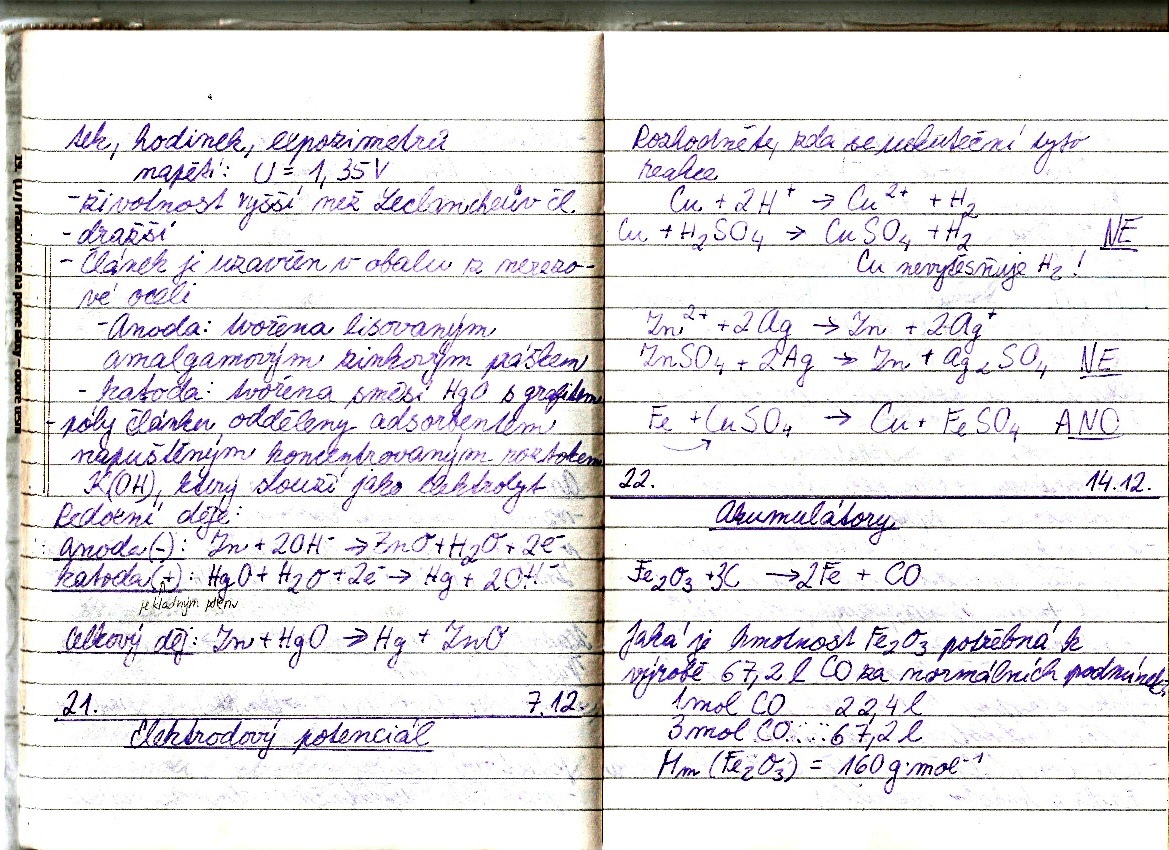 tek, hodinek, expozimetrů
napětí: U = 1,35V
- životnost vyšší než Leclancheův čl.
- dražší
- Článek je uzavřen v obalu z nerezo-
vé oceli
- Anoda: tvořena lisovaným
amalgamovým zinkovým práškem
- katoda: tvořena směsí HgO s grafitem
- póly článku odděleny adsorbentem
napuštěným koncentrovaným roztokem
K(OH), který slouží jako elektrolyt
Redoxní děje:
anoda(-): Zn + 2OH⁻ → ZnO + H₂O + 2e⁻
katoda(+): HgO + H₂O + 2e⁻ → Hg + 2OH⁻
je kladným pólem
Celkový děj: Zn + HgO → Hg + ZnO
21. 7.12.
Elektrodový potenciál
Rozhodněte, zda se uskuteční tyto
reakce
Cu + 2H⁺ → Cu²⁺ + H₂
Cu + H₂SO₄ → CuSO₄ + H₂ NE
Cu nevytěsňuje H₂!
Zn²⁺ + 2Ag → Zn + 2Ag⁺
ZnSO₄ + 2Ag → Zn + Ag₂SO₄ NE
Fe + CuSO₄ → Cu + FeSO₄ ANO
22. 14.12.
Akumulátory
Fe₂O₃ + 3C → 2Fe + CO
Jaká je hmotnost Fe₂O₃ potřebná k
výrobě 67,2 l CO za normálních podmínek.
1mol CO 22,4 l
3mol CO....67,2 l
Mm (Fe₂O₃) = 160 g·mol⁻¹